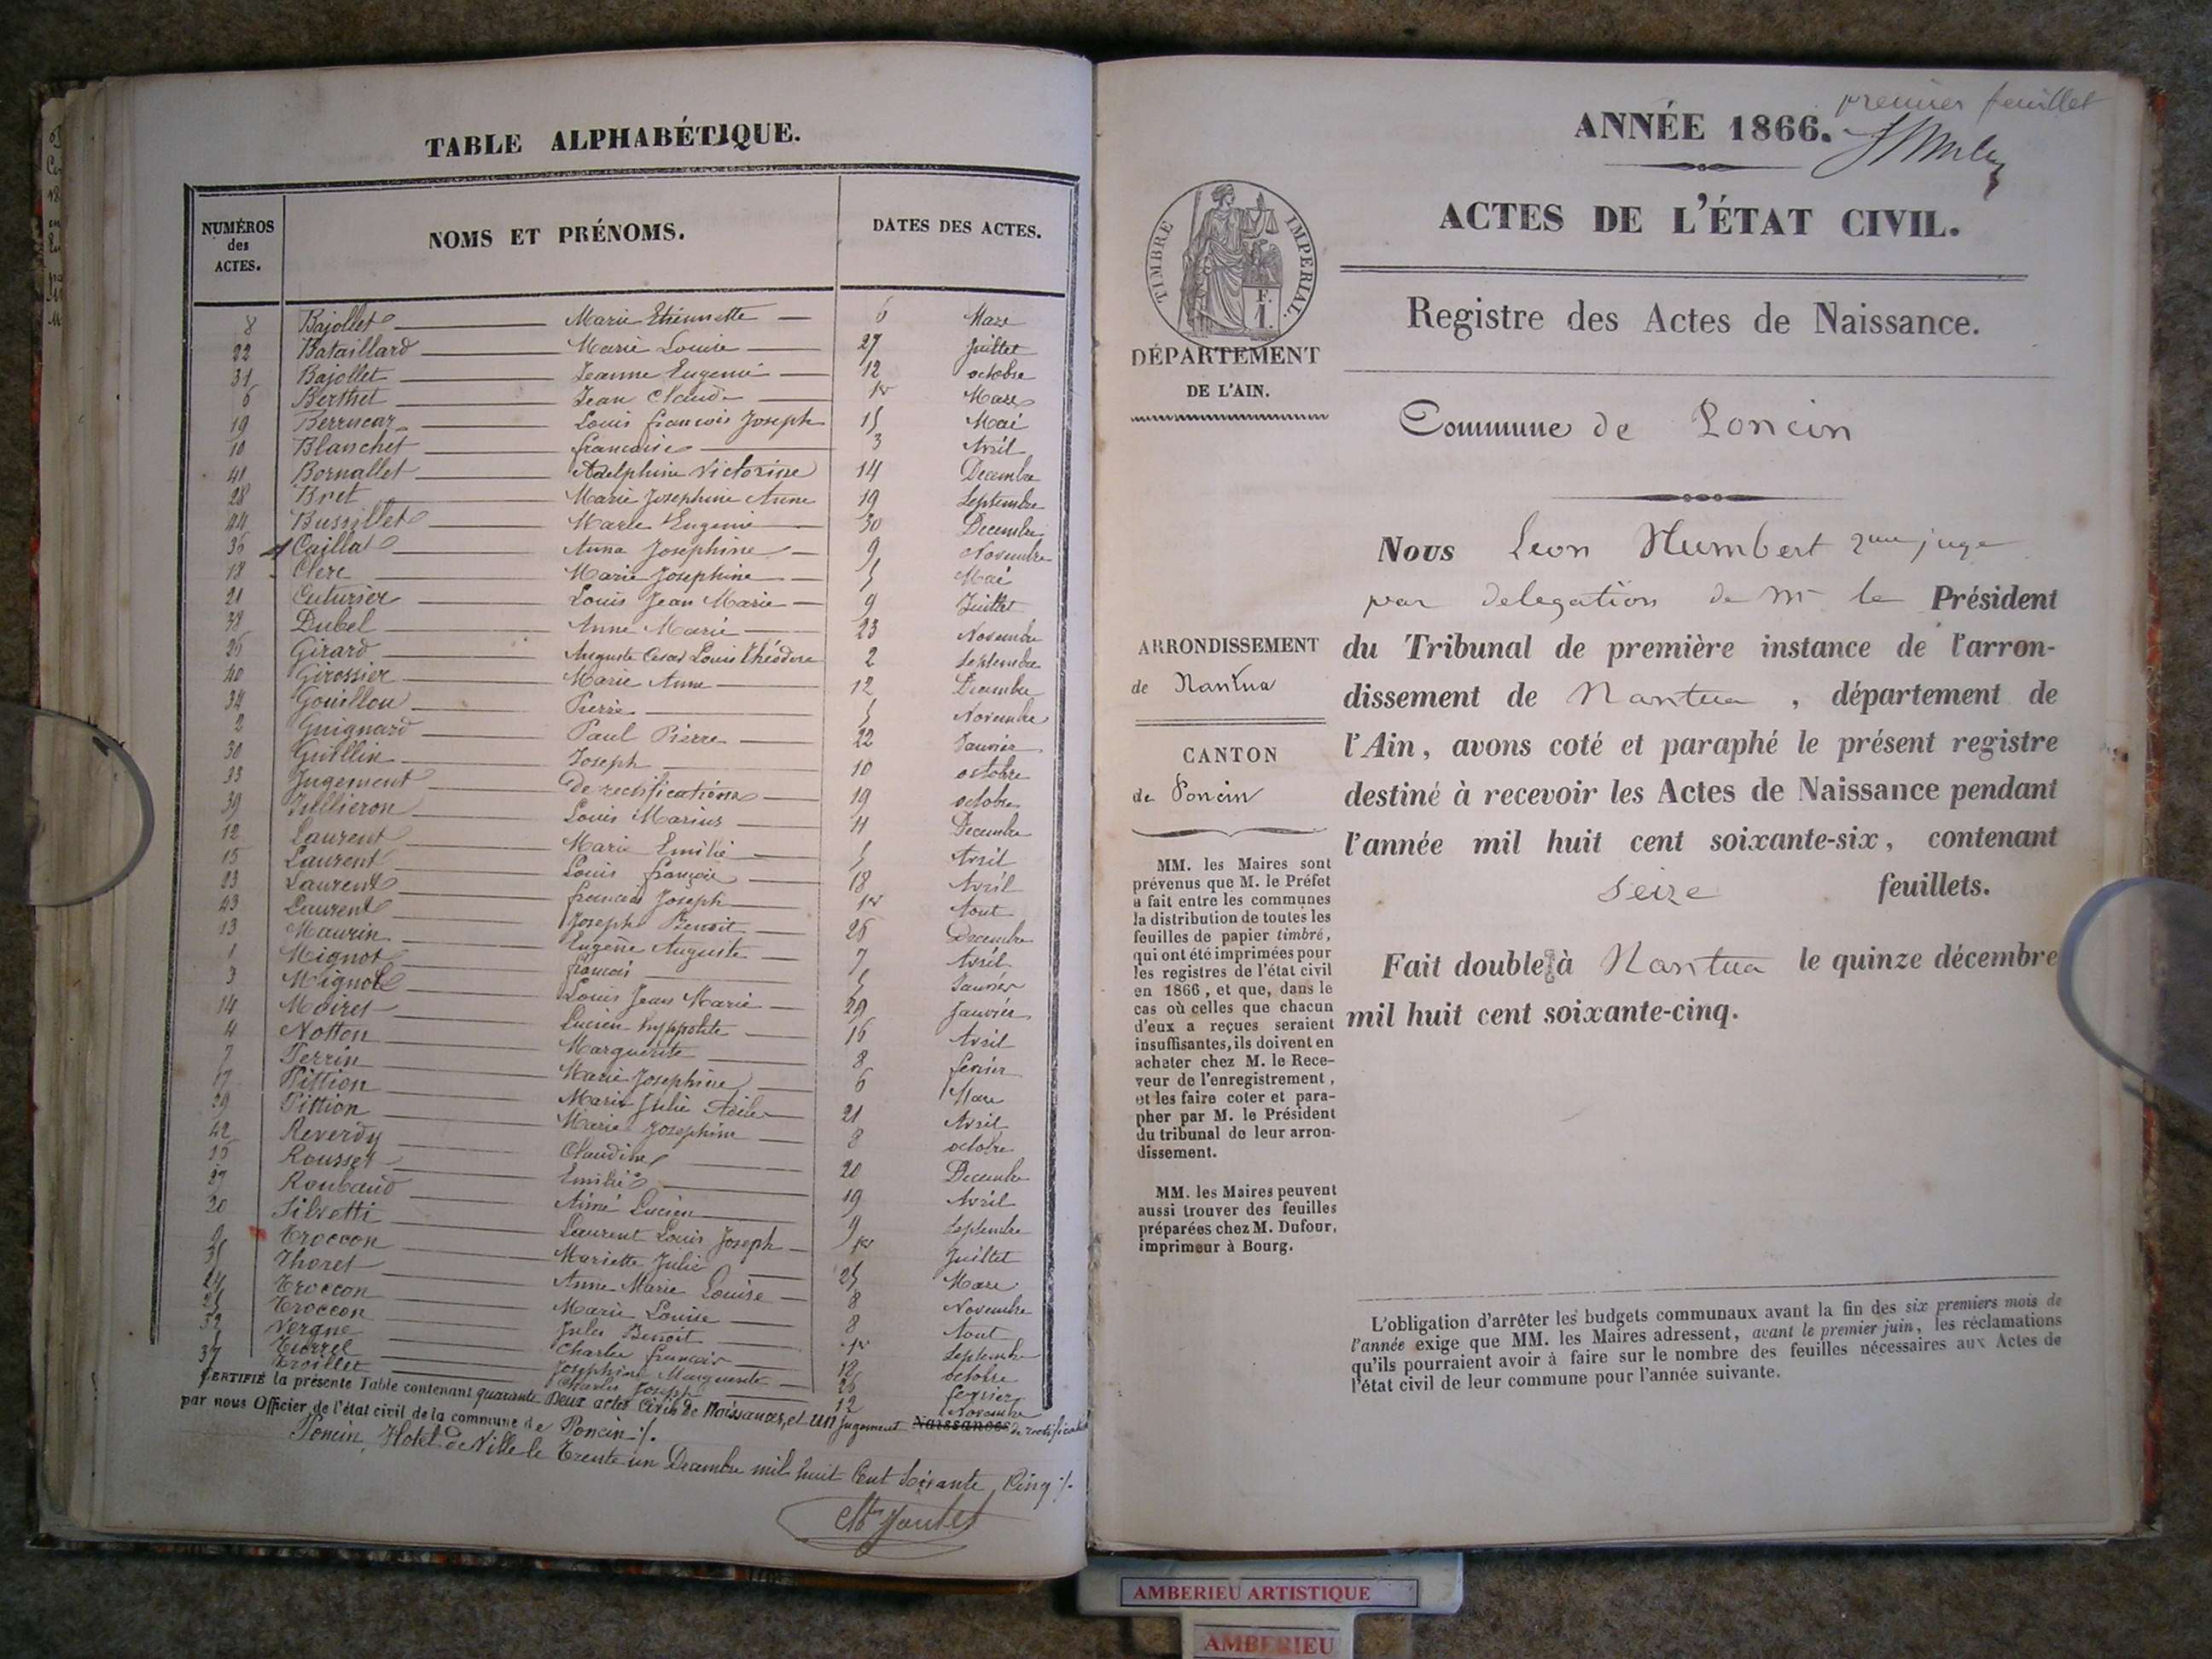 TABLE ALPHABÉTIQUE.
NUMÉROS des ACTES. NOMS ET PRÉNOMS. DATES DES ACTES.
8 Bajollet Marie Etiennette 6 Mars
22 Bataillard Marie Louise 27 Juillet
31 Bajollet Jeanne Eugenie 12 octobre
6 Berthet Jean Claude 1er Mars
19 Louis francois Joseph 15 Mai
10 Blanchet francoise 3 Avril
41 Bornallet Adelphine Victorine 14 Decembre
28 Bret Marie Josephine Anne 19 Septembre
44 Bussillet Marie Eugenie 30 Decembre
36 Caillat Anna Josephine 9 Novembre
18 Clerc Marie Josephine 5 Mai
21 Cuturier Louis Jean Marie 9 Juillet
38 Dubel Anne Marie 23 Novembre
26 Girard Auguste Cesar Louis théodore 2 Septembre
40 Girossier Marie Anne 12 Decembre
34 Gouillou Pierre 5 Novembre
2 Guignard Paul Pierre 22 Janvier
30 Guillin Joseph 10 octobre
33 Jugement De rectifications 19 octobre
39 Louis Marius 11 Decembre
12 Laurent Marie Emilie 5 Avril
15 Laurent Louis françois 18 Avril
23 Laurent francois Joseph 1er Aout
43 Laurent Joseph Benoit 26 Decembre
13 Maurin Eugene Auguste 7 Avril
1 Mignot francois 5 Janvier
3 Mignot Louis Jean Marie 29 Janvier
14 Moiret Lucien hyppolite 16 Avril
4 Notton Marguerite 8 fevrier
7 Perrin Marie Josephine 6 Mars
17 Pittion Marie Julie Adele 21 Avril
29 Pittion Marie Josephine 8 octobre
42 Reverdy Claudine 20 Decembre
16 Rousset Emilie 19 Avril
27 Roubaud Aimé Lucien 9 Septembre
20 Silvetti Laurent Louis Joseph 1er Juillet
9 Troccon Mariette Julie 25 Mars
35 Thoret Anne Marie Louise 8 Novembre
24 Troccon Marie Louise 8 Aout
25 Troccon Jules Benoit 1er Septembre
32 Vergne Charles francois 18 octobre
5 Josephine Marguerite 26 fevrier
37 Troillet Charles Joseph 12 Novembre
CERTIFIÉ la présente Table contenant quarante Deux actes Civils de Naissances, et un Jugement Naissances de rectification
par nous Officier de l'état civil de la commune de Poncin ./.
Poncin, Hotel de Ville le Trente un Decembre mil huit Cent Soixante Cinq ./.
premier feuillet
ANNÉE 1866.
ACTES DE L'ÉTAT CIVIL.
TIMBRE IMPERIAL.
F. 1.
Registre des Actes de Naissance.
DÉPARTEMENT
DE L'AIN.
Commune de Poncin
Nous Leon Humbert juge
par delegation de Mr le Président
ARRONDISSEMENT
de Nantua
du Tribunal de première instance de l'arron-
dissement de Nantua, département de
l'Ain, avons coté et paraphé le présent registre
destiné à recevoir les Actes de Naissance pendant
l'année mil huit cent soixante-six, contenant
seize feuillets.
Fait double à Nantua le quinze décembre
mil huit cent soixante-cinq.
CANTON
de Poncin
MM. les Maires sont
prévenus que M. le Préfet
a fait entre les communes
la distribution de toutes les
feuilles de papier timbré,
qui ont été imprimées pour
les registres de l'état civil
en 1866, et que, dans le
cas où celles que chacun
d'eux a reçues seraient
insuffisantes, ils doivent en
acheter chez M. le Rece-
veur de l'enregistrement,
et les faire coter et para-
pher par M. le Président
du tribunal de leur arron-
dissement.
MM. les Maires peuvent
aussi trouver des feuilles
préparées chez M. Dufour,
imprimeur à Bourg.
L'obligation d'arrêter les budgets communaux avant la fin des six premiers mois de
l'année exige que MM. les Maires adressent, avant le premier juin, les réclamations
qu'ils pourraient avoir à faire sur le nombre des feuilles nécessaires aux Actes de
l'état civil de leur commune pour l'année suivante.
AMBERIEU ARTISTIQUE
AMBERIEU